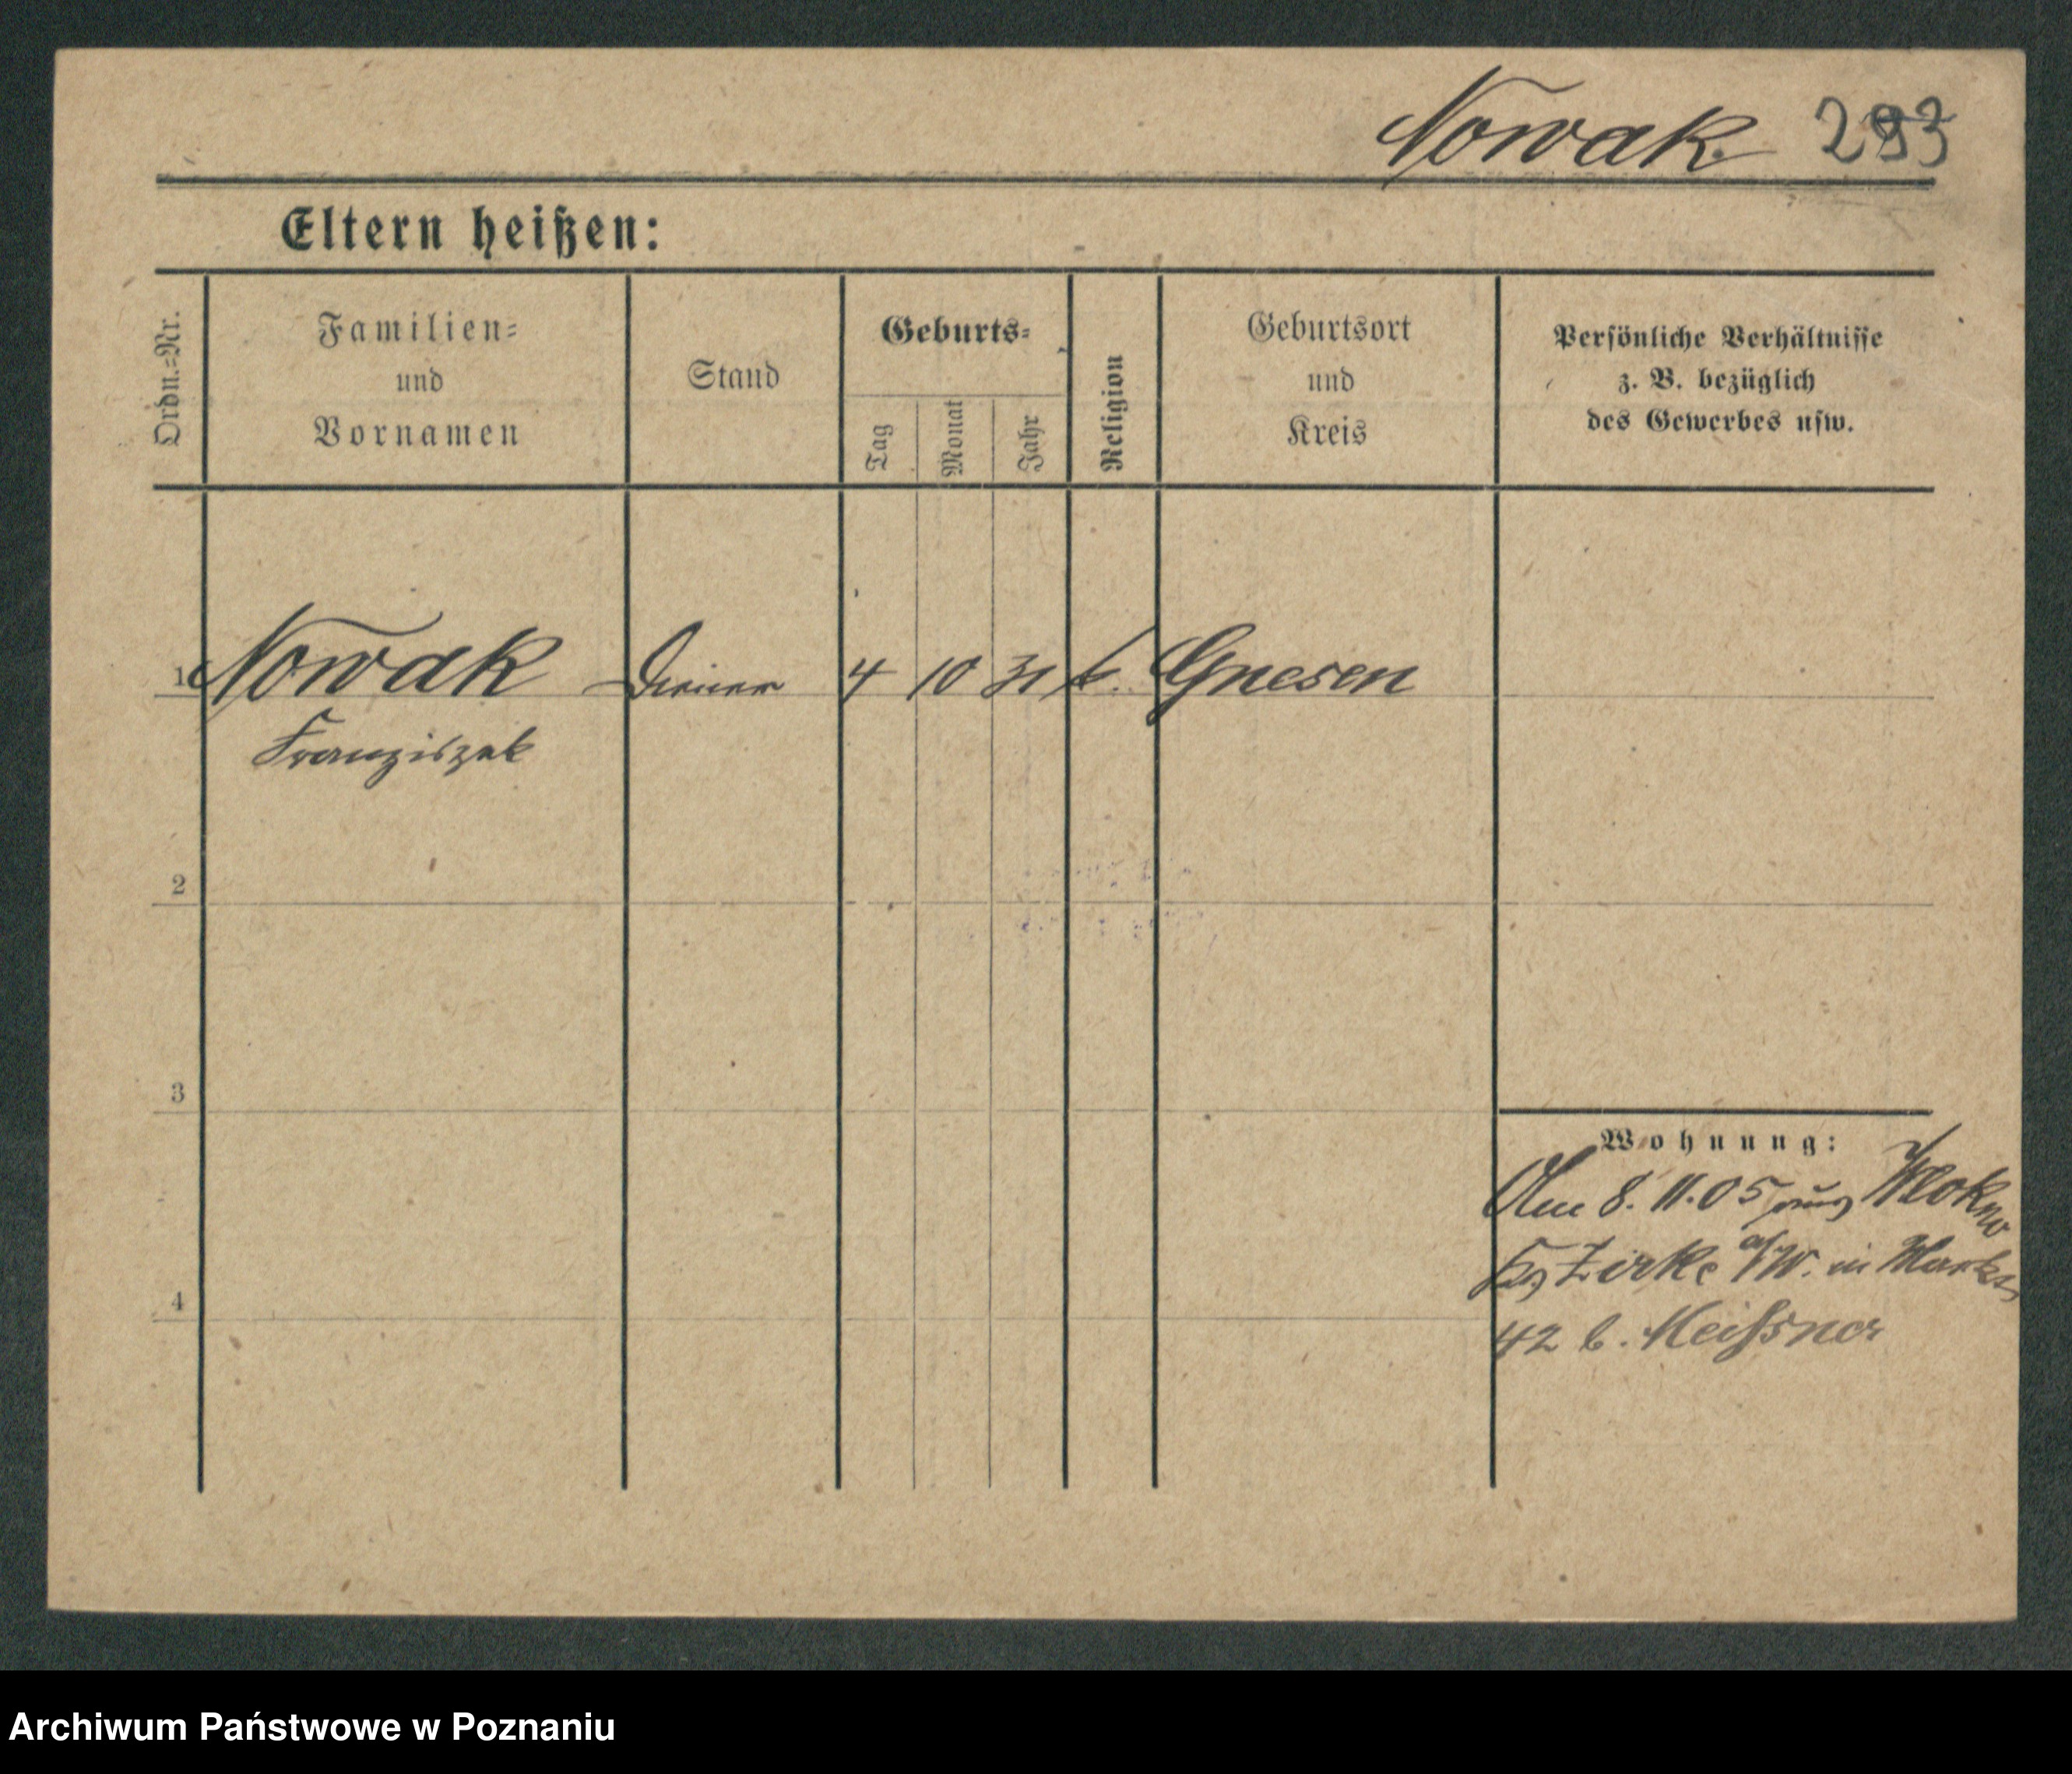 Nowak. 293
Eltern heißen:
Ordn.=Nr.
Familien=
und
Vornamen
Stand
Geburts=
Tag
Monat
Jahr
Religion
Geburtsort
und
Kreis
Persönliche Verhältnisse
z. B. bezüglich
des Gewerbes usw.
1 Nowak Diener 4 10 31 k. Gnesen
Franziszek
2
3
4
Wohnung:
Am 8. 11. 05 aus
Zirke a/W. in
42 b. Meißner
Archiwum Państwowe w Poznaniu